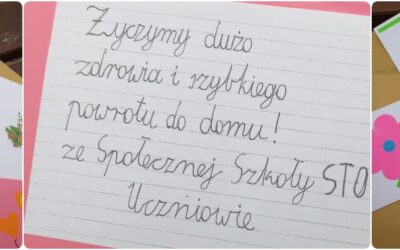 Życzymy dużo
zdrowia i szybkiego
powrotu do domu!
ze Społecznej Szkoły STO
Uczniowie